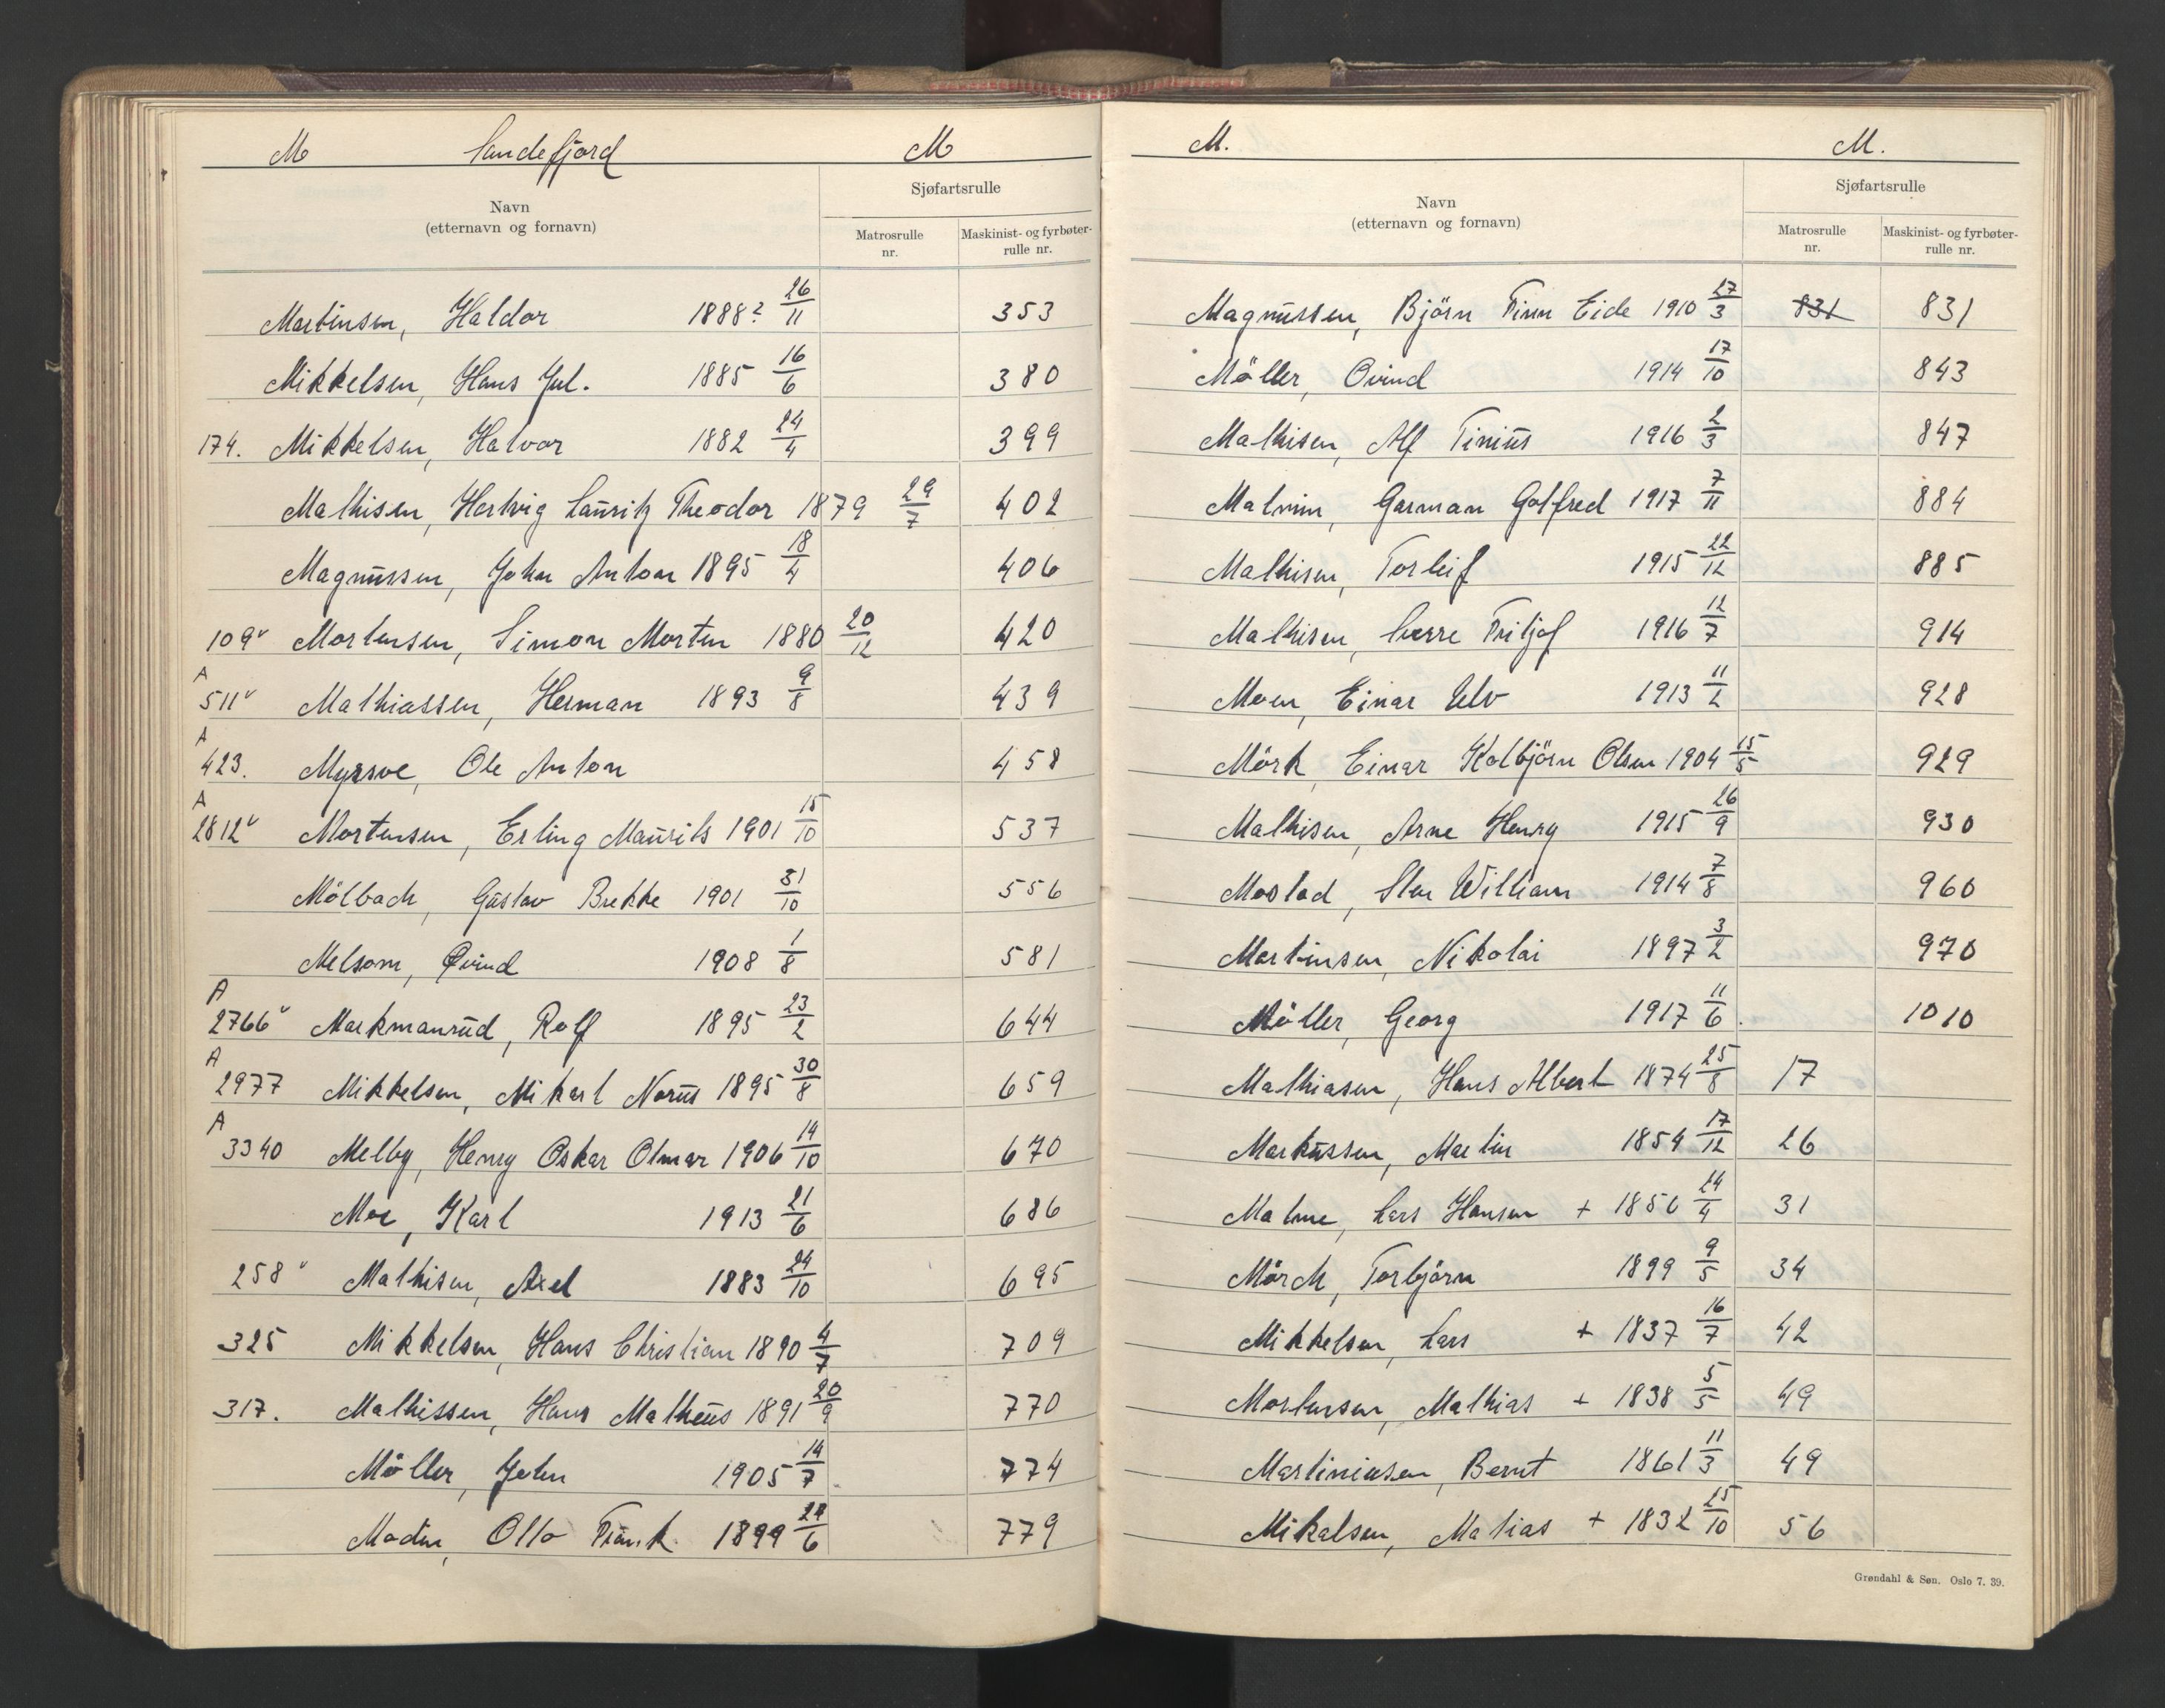 M Sandefjord M
Navn
(etternavn og fornavn)
Sjøfartsrulle
Matrosrulle nr.
Maskinist- og fyrbøter-rulle nr.
Martinsen, Haldor 1888? 26/11 353
Mikkelsen, Hans Jul. 1885 16/6 380
174. Mikkelsen, Halvor 1882 24/4 399
Mathisen, Hertvig Lauritz Theodor 1879 29/7 402
Magnussen, John Anton 1895 18/4 406
109v Mortensen, Simon Morten 1880 20/12 420
A 511v Mathiassen, Herman 1893 9/8 439
A 423. Myrsve, Ole Anton 458
A 2812v Mortensen, Erling Maurits 1901 15/10 537
Mölbach, Gustav Brekke 1901 31/10 556
Melsom, Øvind 1908 1/8 581
A 2766v Markmanrud, Rolf 1895 23/2 644
A 2977 Mikkelsen, Mikael Norus 1895 30/8 659
A 3340 Melby, Henry Oskar Olmar 1906 14/10 670
Moe, Karl 1913 21/6 686
258v Mathisen, Axel 1883 24/10 695
325 Mikkelsen, Hans Christian 1890 4/7 709
317. Mathissen, Hans Matheus 1891 20/9 770
Möller, John 1905 14/7 774
Modin, Otto Frank 1899 28/6 779
M. M.
Navn
(etternavn og fornavn)
Sjøfartsrulle
Matrosrulle nr.
Maskinist- og fyrbøter-rulle nr.
Magnussen, Björn Finn Eide 1910 27/3 831 831
Möller, Ovind 1914 17/10 843
Mathisen, Alf Tinius 1916 2/3 847
Malmin, Garman Golfred 1917 7/11 884
Mathisen, Torleif 1915 22/12 885
Mathisen, Sverre Fritjof 1916 12/7 914
Moen, Einar Ulv 1913 11/2 928
Mörk, Einar Kolbjörn Olsen 1904 15/5 929
Mathisen, Arne Henry 1915 26/9 930
Mostad, Sten William 1914 7/8 960
Martinsen, Nikolai 1897 3/2 970
Möller, Georg 1917 11/6 1010
Mathiasen, Hans Albert 1874 25/8 17
Markussen, Martin 1854 17/12 26
Malme, Lars Hansen + 1856 24/4 31
Mörch, Torbjörn 1899 9/5 34
Mikkelsen, Lars + 1837 16/7 42
Mortensen, Mathias + 1838 5/5 49
Martiniusen, Bernt 1861 11/3 49
Mikalsen, Matias + 1832 25/10 56
Grøndahl & Søn. Oslo 7. 39.